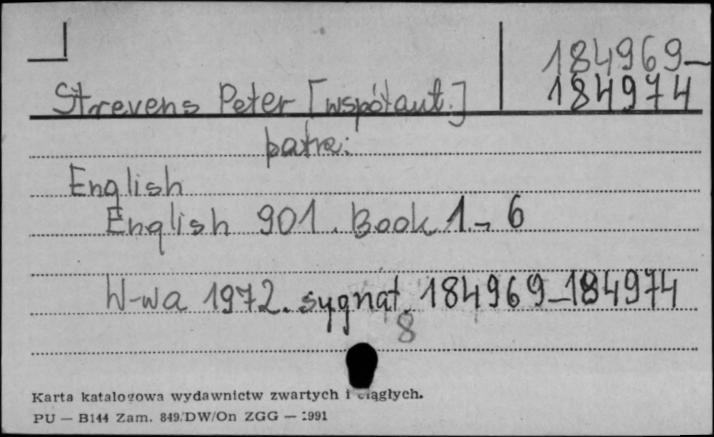 184969-
Strevens Peter [współaut.] 184974
patrz:
English
English 901. Book 1.- 6
W-wa 1972. sygnat. 184969-184974
8
Karta katalogowa wydawnictw zwartych i ciągłych.
PU — B144 Zam. 849/DW/On ZGG — 1991